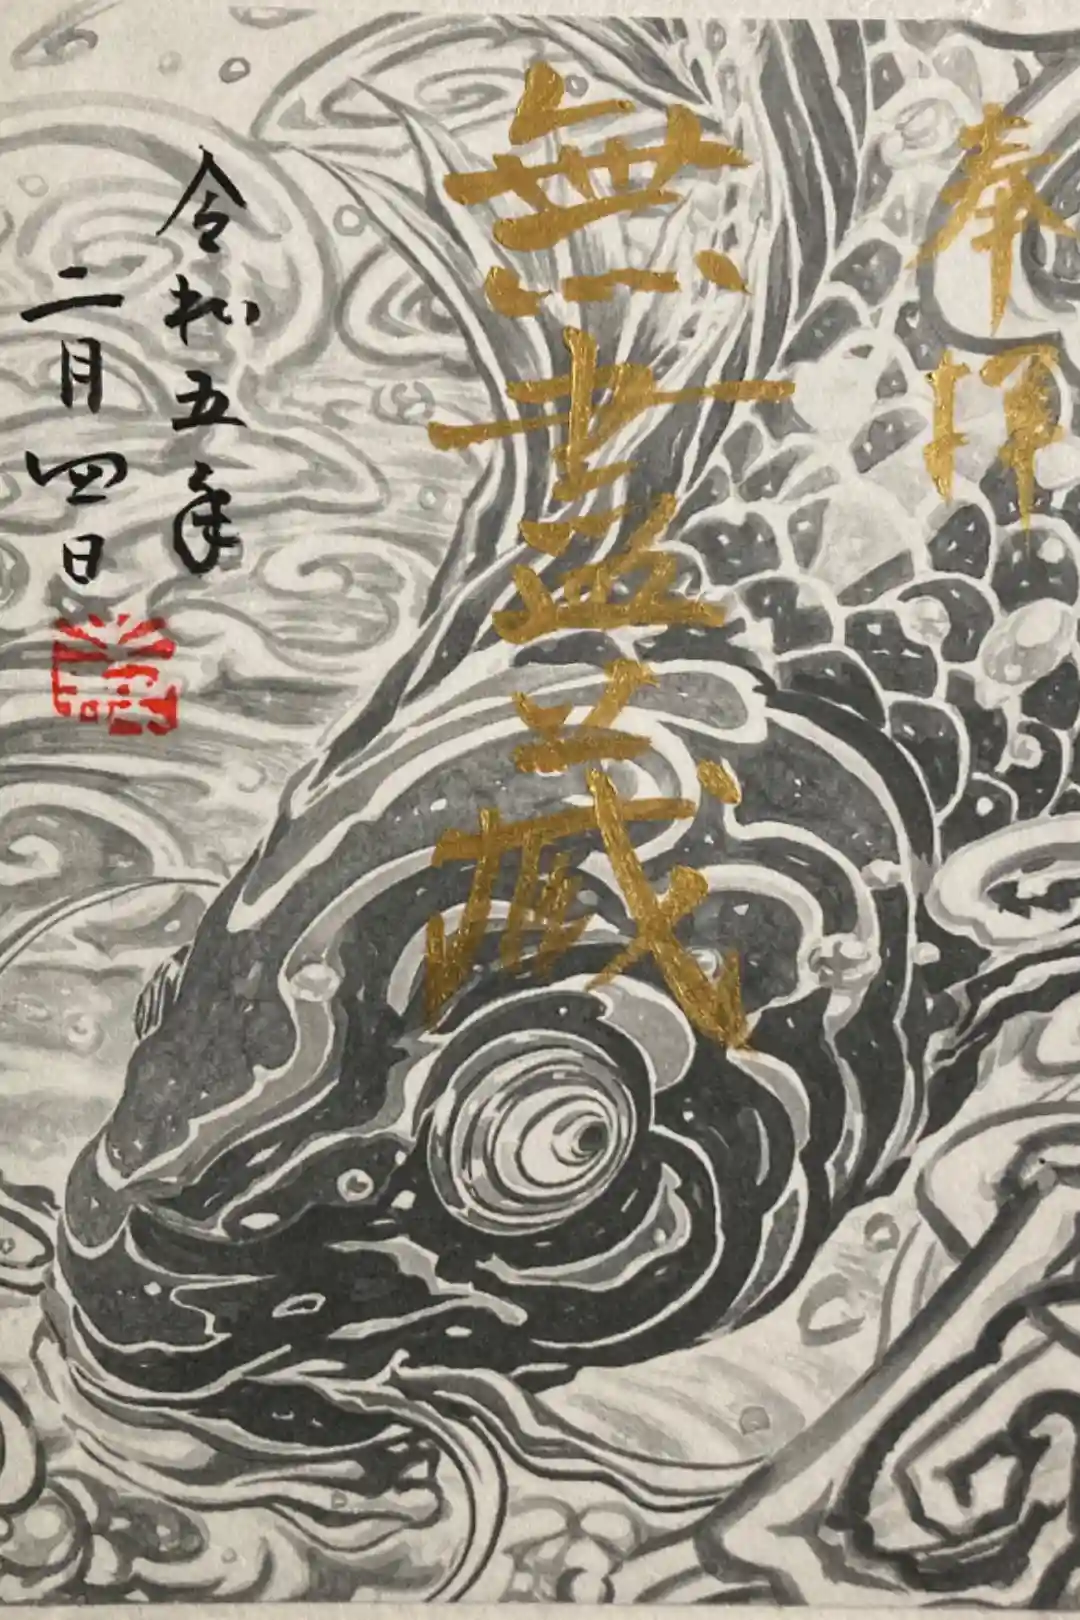 奉拝
無盡蔵
令和五年
二月四日